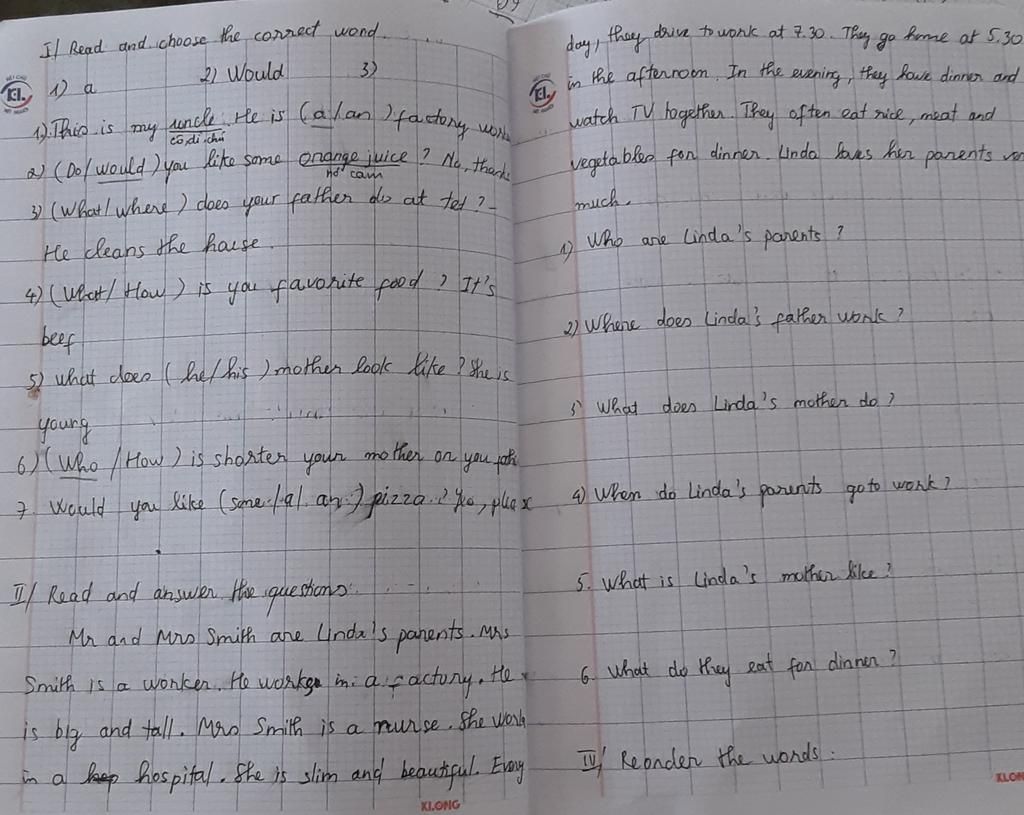 I/ Read and choose the correct word.....
1) a 2) Would 3)
1) This is my uncle. He is (a/an) factory work
cô, dì, chú
2) (Do/would) you like some orange juice? No, thank
nc cam
3) (What/where) does your father do at tet? -
He cleans the house.
4) (What/How) is you favorite food? It's
beef
5) what does (he/his) mother look like? She is
young
6) (Who/How) is shorter your mother or you
7. Would you like (some/a/an) pizza? Yes,
II/ Read and answer the questions:
Mr and Mrs Smith are Linda's parents. Mrs
Smith is a worker. He works in a factory. He
is big and tall. Mrs Smith is a nurse. She work
in a hospital. She is slim and beautiful. Every
KLONG
day, they drive to work at 7.30. They go home at 5.30
in the afternoon. In the evening, they have dinner and
watch TV together. They often eat rice, meat and
vegetables for dinner. Linda loves her parents
much.
1) Who are Linda's parents?
2) Where does Linda's father work?
3) What does Linda's mother do?
4) When do Linda's parents go to work?
5. What is Linda's mother like?
6. What do they eat for dinner?
IV/ Reorder the words:
KLON